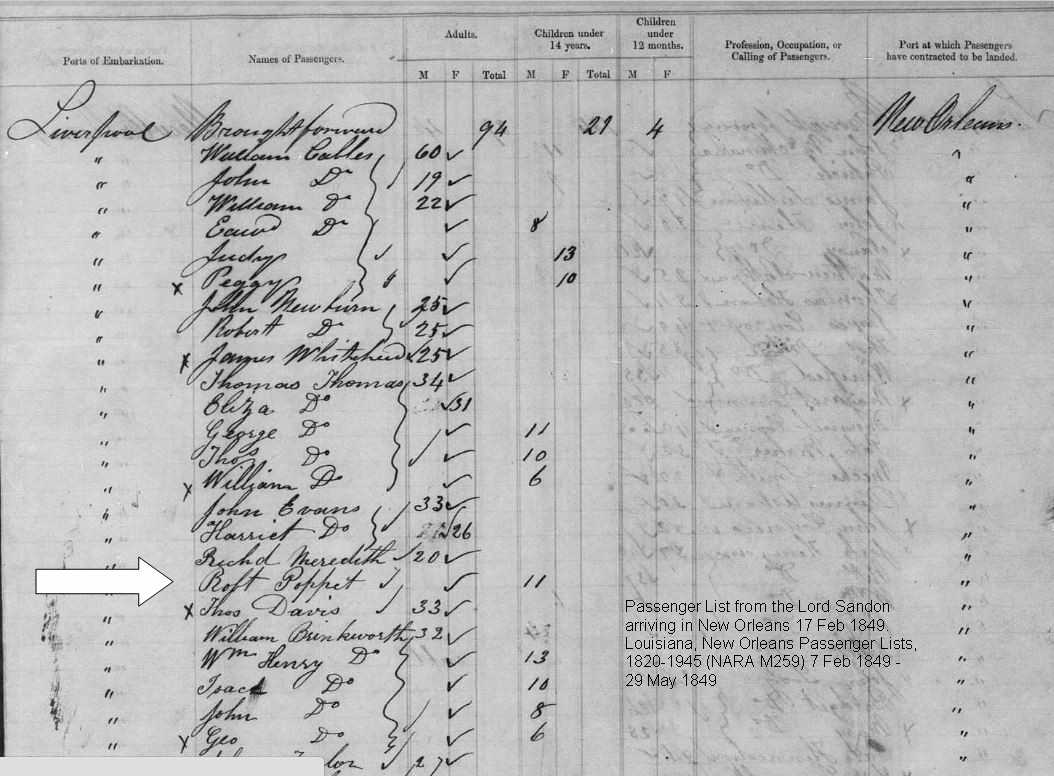 Ports of Embarkation. Names of Passengers. Adults. Children under 14 years. Children under 12 months. Profession, Occupation, or Calling of Passengers. Port at which Passengers have contracted to be landed.
M F Total M F Total M F
Liverpool Brought forward 94 29 4 New Orleans.
" William 60 ✓
" John Do 19 ✓ "
" William Do 22 ✓ "
" Do ✓ 8 "
" Judy ✓ 13 "
" x Peggy ✓ 10 "
" John Newburn 25 ✓ "
" Robert Do 25 ✓ "
" x James Whitehead 25 ✓ "
" Thomas Thomas 34 ✓ "
" Eliza Do ✓ 31 "
" George Do ✓ 11 "
" Thos Do ✓ 10 "
" x William Do ✓ 6 "
" John Evans 33 ✓ "
" Harriet Do ✓ 26 "
" Richd Meredith 20 ✓ "
Robt Poppet ✓ 11 "
" x Thos Davis 33 ✓ "
" William Brinkworth 32 ✓ "
" Wm Henry Do ✓ 13 "
" Isack Do ✓ 10 "
" John Do ✓ 8 "
" x Geo Do ✓ 6 "
27 ✓ "
Passenger List from the Lord Sandon
arriving in New Orleans 17 Feb 1849.
Louisiana, New Orleans Passenger Lists,
1820-1945 (NARA M259) 7 Feb 1849 -
29 May 1849